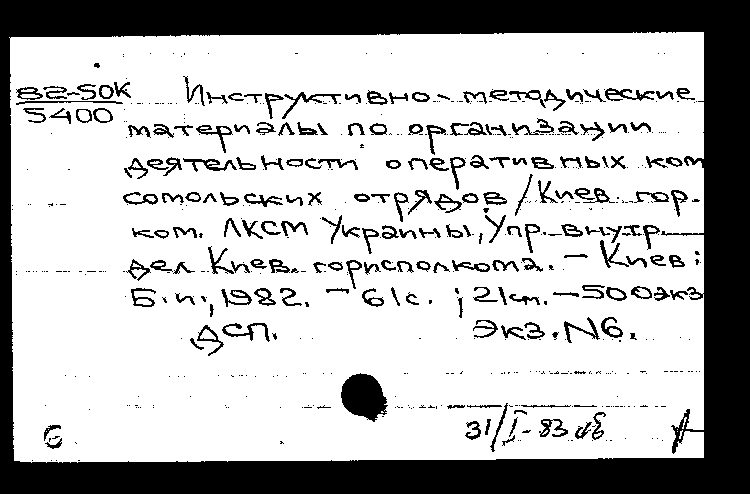 82-50К Инструктивно-методические
5400 материалы по организации
деятельности оперативных ком
сомольских отрядов / Киев. гор.
ком. ЛКСМ Украины, Упр. внутр.
дел Киев. горисполкома. - Киев:
Б.и., 1982. - 61с. ; 21см. - 500экз
ДСП. Экз. N6.
6 31/I-83